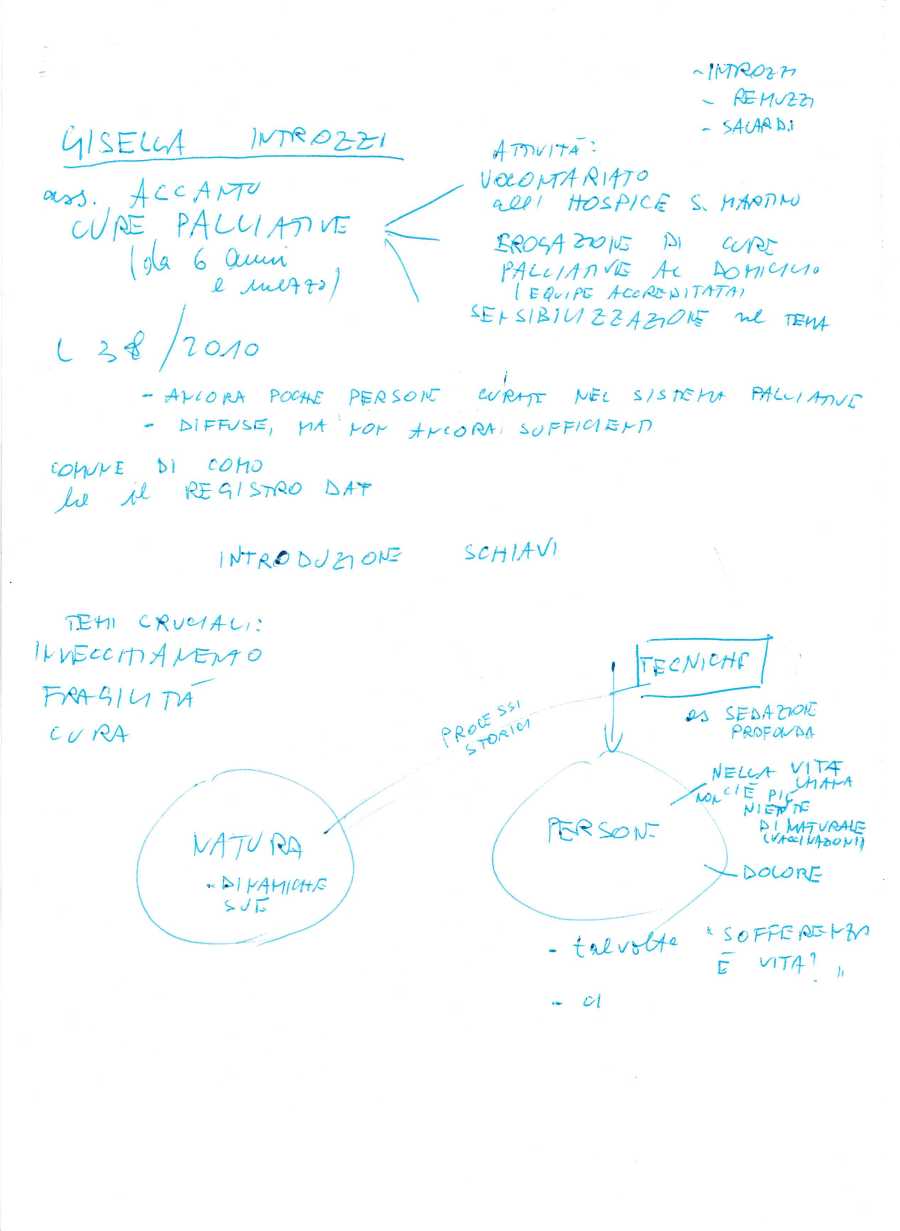 - INTROZZI
- REMUZZI
- SACARDI
GISELLA INTROZZI
ass. ACCANTO
CURE PALLIATIVE
(da 6 anni
e mezzo)
ATTIVITÀ:
VOLONTARIATO
all' HOSPICE S. MARTINO
EROGAZIONE DI CURE
PALLIATIVE AL DOMICILIO
(EQUIPE ACCREDITATA)
SENSIBILIZZAZIONE nel TEMA
L 38/2010
- ANCORA POCHE PERSONE CURATE NEL SISTEMA PALLIATIVE
- DIFFUSE, MA NON ANCORA SUFFICIENTI
COMUNE DI COMO
ha il REGISTRO DAT
INTRODUZIONE SCHIAVI
TEMI CRUCIALI:
INVECCHIAMENTO
FRAGILITÀ
CURA
TECNICHE
es SEDAZIONE
PROFONDA
PROCESSI
STORICI
NATURA
- DINAMICHE
SUE
PERSONE
NELLA VITA
UMANA
NON C'È PIÙ
NIENTE
DI NATURALE
(VACCINAZIONI)
DOLORE
- talvolta "SOFFERENZA
È VITA?"
- CI